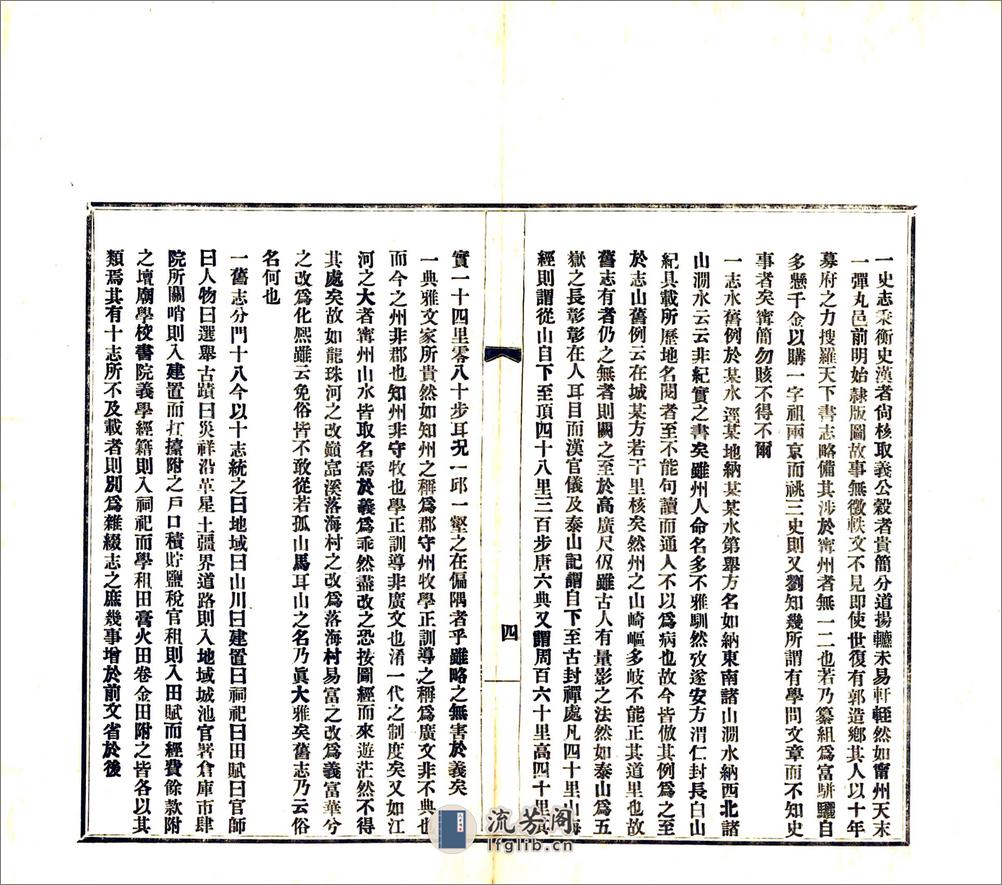 一史志乘衡史漢者尙核取義公穀者貴簡分道揚鑣未易軒輊然如甯州天末
一彈丸邑前明始隸版圖故事無徵軼文不見即使世復有郭造鄉其人以十年
幕府之力搜羅天下書志略備其涉於甯州者無一二也若乃纂組爲富騈驪自
多懸千金以購一字祖兩京而祧三史則又劉知幾所謂有學問文章而不知史
事者矣甯簡勿賅不得不爾
一志水舊例於某水逕某地納某某水第舉方名如納東南諸山澗水納西北諸
山澗水云云非紀實之書矣雖州人命名多不雅馴然攷遂安方渭仁封長白山
紀具載所歷地名閱者至不能句讀而通人不以爲病也故今皆倣其例爲之至
於志山舊例云在城某方若干里核矣然州之山崎嶇多岐不能正其道里也故
舊志有者仍之無者則闕之至於高廣尺仭雖古人有量影之法然如泰山爲五
嶽之長彰彰在人耳目而漢官儀及泰山記謂自下至古封禪處凡四十里山海
經則謂從山自下至頂四十八里三百步唐六典又謂周百六十里高四十里其
四
實一十四里零八十步耳况一邱一壑之在偏隅者乎雖略之無害於義矣
一典雅文家所貴然如知州之稱爲郡守州牧學正訓導之稱爲廣文非不典也
而今之州非郡也知州非守牧也學正訓導非廣文也淆一代之制度矣又如江
河之大者甯州山水皆取名焉於義爲乖然盡改之恐按圖經而來遊茫然不得
其處矣故如龍珠河之改嶺富溪落海村之改爲落海村易富之改爲義富華兮
之改爲化熙雖云免俗皆不敢從若孤山馬耳山之名乃眞大雅矣舊志乃云俗
名何也
一舊志分門十八今以十志統之曰地域曰山川曰建置曰祠祀曰田賦曰官師
曰人物曰選舉古蹟曰災祥沿革星土疆界道路則入地域城池官署倉庫市肆
院所關哨則入建置而打擡附之戶口積貯鹽稅官租則入田賦而經費餘款附
之壇廟學校書院義學經籍則入祠祀而學租田膏火田卷金田附之皆各以其
類焉其有十志所不及載者則別爲雜綴志之庶幾事增於前文省於後
流芳阁
lfglib.cn